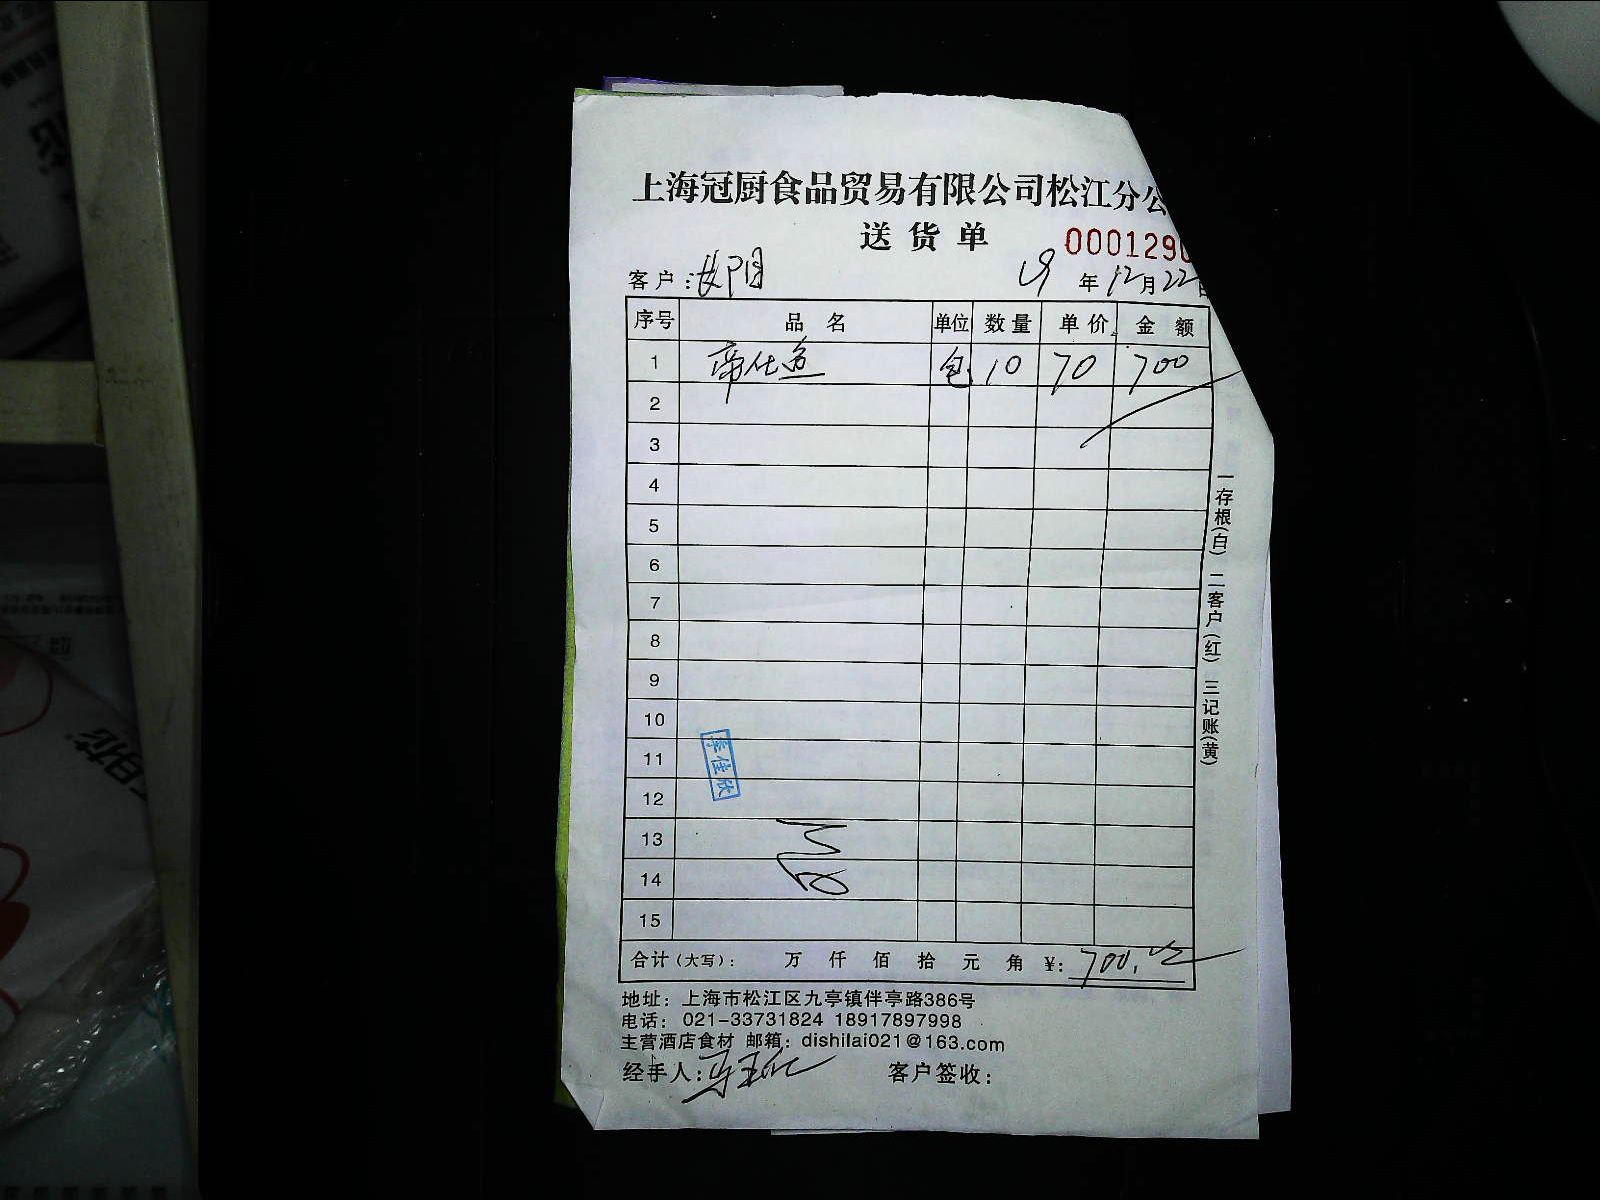 上海冠厨食品贸易有限公司松江分公
送货单
0001290
客户：长阳 19年12月22日
序号 品名 单位 数量 单价 金额
1 帝仕鱼 包 10 70 700
2
3
4
5
6
7
8
9
10
11
12
13
14
15
李佳欣
合计（大写）： 万 仟 佰 拾 元 角 ¥：700.00
地址：上海市松江区九亭镇伴亭路386号
电话：021-33731824 18917897998
主营酒店食材 邮箱：dishilai021@163.com
经手人： 客户签收：
一存根（白） 二客户（红） 三记账（黄）